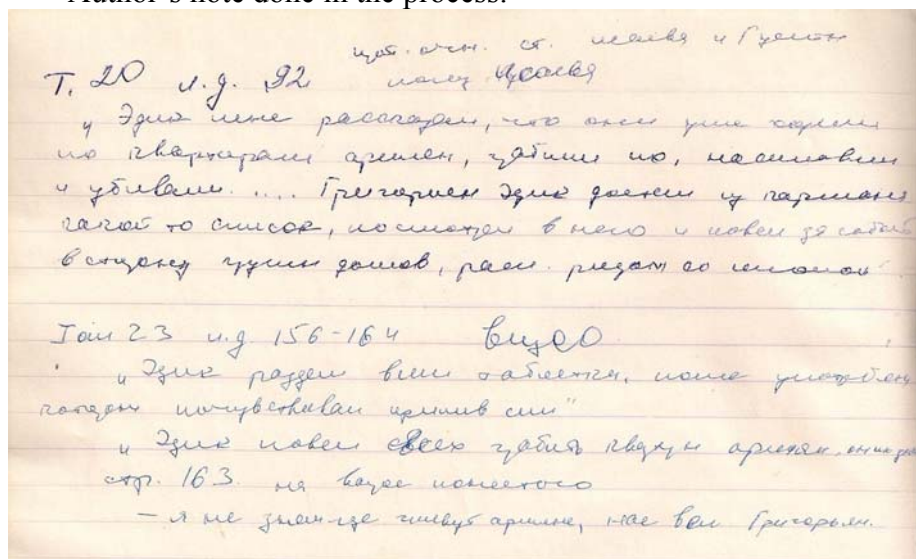 Author's note done in the process:
ст. Исаева и Гусейн
Т. 20 л.д. 92 Исаева
„Эдик мне рассказал, что они уже ходили
по квартирам армян, грабили их, насиловали
и убивали. .... Григорьян Эдик достал из кармана
какой то список, посмотрел в него и повел за собой
в сторону группы домов, расп. рядом со школой“
Том 23 л.д. 156-164 видео
„Эдик раздал всем таблетки, после
которых почувствовал прилив сил“
„Эдик повел всех громить квартиры армян
стр. 163 на
– я не знал где живут армяне, нас вел Григорьян.